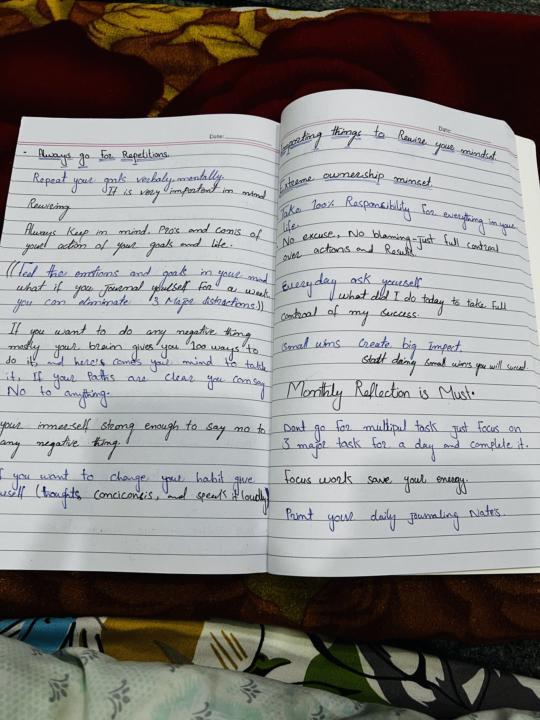 Date:
• Always go For Repetitions.
Repeat your goals verbaly, mentally.
It is very important in mind
Rewiring
Always Keep in mind. Pros and cons of
your action of your goals and life.
((Feel the emotions and goals in your mind
what if you Journal yourself for a week
you can eliminate 3 Major distractions))
If you want to do any negative thing
mostly your brain gives you 100 ways to
do it, and here's comes your mind to tackle
it, If your Paths are clear you can say
No to anything.
your innerself strong enough to say no to
any negative thing.
If you want to change your habit give
(thoughts, and speak it loudly)
Date:
Importing things to Rewire your mindset.
Extreme ownership minset.
Take 100% Responsibility For everything in your
life.
No excuse, No blaming-just full control
over actions and Result.
Everyday ask yourself
what did I do today to take full
control of my success.
Small wins create big Impect.
start doing small wins you will succed.
Monthly Reflection is Must.
Dont go for multipul task just focus on
3 major task for a day and complete it.
Focus work save your energy.
Print your daily journaling Notes.